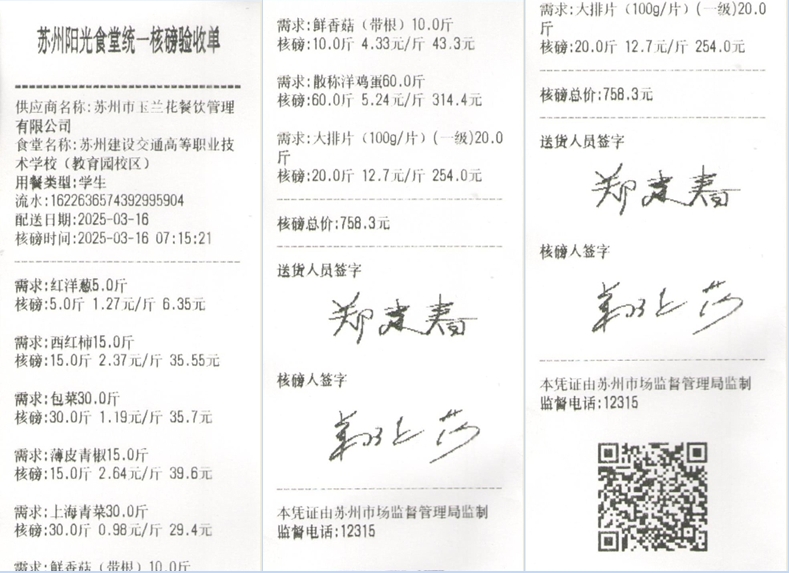 苏州阳光食堂统一核磅验收单
供应商名称:苏州市玉兰花餐饮管理
有限公司
食堂名称:苏州建设交通高等职业技
术学校(教育园校区)
用餐类型:学生
流水:1622636574392995904
配送日期:2025-03-16
核磅时间:2025-03-16 07:15:21
需求:红洋葱5.0斤
核磅:5.0斤 1.27元/斤 6.35元
需求:西红柿15.0斤
核磅:15.0斤 2.37元/斤 35.55元
需求:包菜30.0斤
核磅:30.0斤 1.19元/斤 35.7元
需求:薄皮青椒15.0斤
核磅:15.0斤 2.64元/斤 39.6元
需求:上海青菜30.0斤
核磅:30.0斤 0.98元/斤 29.4元
需求:鲜香菇(带根)10.0斤
需求:鲜香菇(带根)10.0斤
核磅:10.0斤 4.33元/斤 43.3元
需求:散称洋鸡蛋60.0斤
核磅:60.0斤 5.24元/斤 314.4元
需求:大排片(100g/片)(一级)20.0
斤
核磅:20.0斤 12.7元/斤 254.0元
核磅总价:758.3元
送货人员签字
郑建春
核磅人签字
本凭证由苏州市场监督管理局监制
监督电话:12315
需求:大排片(100g/片)(一级)20.0
斤
核磅:20.0斤 12.7元/斤 254.0元
核磅总价:758.3元
送货人员签字
郑建春
核磅人签字
本凭证由苏州市场监督管理局监制
监督电话:12315